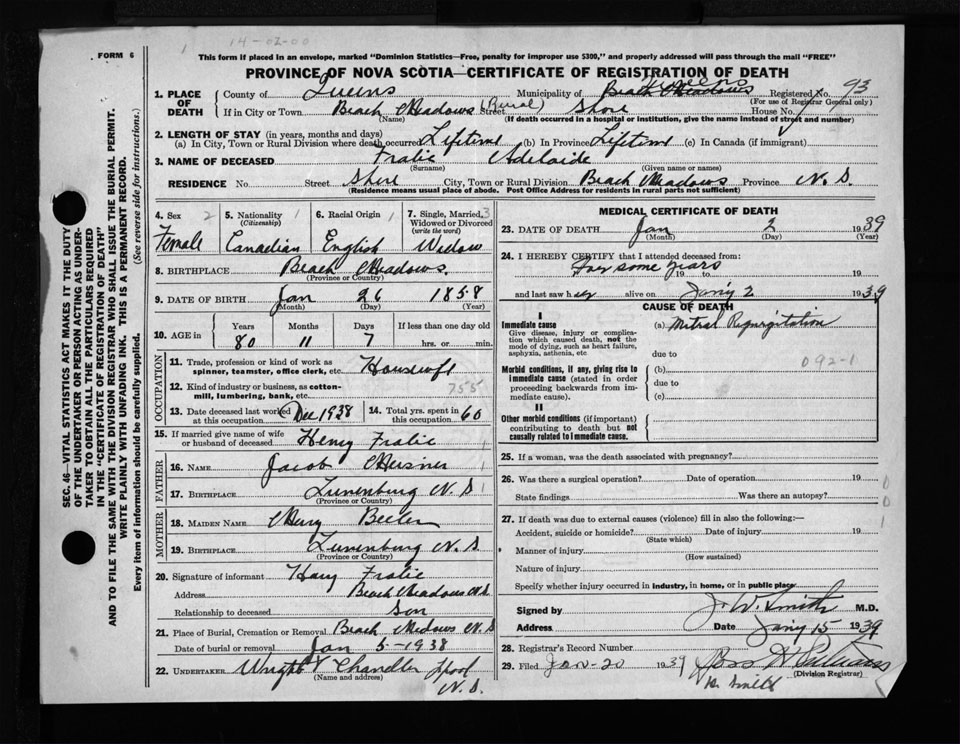 14-02-00
FORM 6
1
This form if placed in an envelope, marked "Dominion Statistics—Free, penalty for improper use $300," and properly addressed will pass through the mail "FREE"
PROVINCE OF NOVA SCOTIA—CERTIFICATE OF REGISTRATION OF DEATH
1. PLACE OF DEATH
County of Queens Municipality of Queens Beach Meadows Registered No. 93
(For use of Registrar General only)
If in City or Town Beach Meadows (Rural) Street Shore House No.
(Name) (If death occurred in a hospital or institution, give the name instead of street and number)
2. LENGTH OF STAY (in years, months and days)
(a) In City, Town or Rural Division where death occurred Lifetime (b) In Province Lifetime (c) In Canada (if immigrant)
3. NAME OF DECEASED Fralic Adelaide
(Surname) (Given name or names)
RESIDENCE No. Street Shore City, Town or Rural Division Beach Meadows Province N. S.
(Residence means usual place of abode. Post Office Address for Rural parts not sufficient)
SEC. 46—VITAL STATISTICS ACT MAKES IT THE DUTY
OF THE UNDERTAKER OR PERSON ACTING AS UNDER-
TAKER TO OBTAIN ALL THE PARTICULARS REQUIRED
IN THE "CERTIFICATE OF REGISTRATION OF DEATH"
AND TO FILE THE SAME WITH THE DIVISION REGISTRAR WHO SHALL ISSUE THE BURIAL PERMIT.
WRITE PLAINLY WITH UNFADING INK. THIS IS A PERMANENT RECORD.
Every item of information should be carefully supplied. (See reverse side for instructions.)
4. Sex 2 Female
5. Nationality (Citizenship) 1 Canadian
6. Racial Origin 1 English
7. Single, Married, Widowed or Divorced (write the word) 3 Widow
8. BIRTHPLACE Beach Meadows.
(Province or Country)
9. DATE OF BIRTH Jan 26 1858
(Month) (Day) (Year)
10. AGE in Years 80 Months 11 Days 7 If less than one day old hrs. or min.
OCCUPATION
11. Trade, profession or kind of work as spinner, teamster, office clerk, etc. Housewife
12. Kind of industry or business, as cotton-mill, lumbering, bank, etc. 755
13. Date deceased last worked at this occupation Dec 1938
14. Total yrs. spent in this occupation 60
15. If married give name of wife or husband of deceased Henry Fralic
FATHER
16. NAME Jacob Meisner
17. BIRTHPLACE Lunenburg N. S
(Province or Country)
MOTHER
18. MAIDEN NAME Mary
19. BIRTHPLACE Lunenburg N. S
(Province or Country)
20. Signature of informant Fralic
Address Beach Meadows N.S
Relationship to deceased Son
21. Place of Burial, Cremation or Removal Beach Medows N. S
Date of burial or removal Jan 5-1938
22. UNDERTAKER Wright & Chandler Lpool
(Name and address) N. S.
MEDICAL CERTIFICATE OF DEATH
23. DATE OF DEATH Jan 2 1939
(Month) (Day) (Year)
24. I HEREBY CERTIFY that I attended deceased from:
For some years 19 to 19
and last saw her alive on Jan'y 2 1939
CAUSE OF DEATH
I
Immediate cause
Give disease, injury or complication which caused death, not the mode of dying, such as heart failure, asphyxia, asthenia, etc
(a) Mitral Regurgitation
due to
Morbid conditions, if any, giving rise to immediate cause (stated in order proceeding backwards from immediate cause)
(b) 092-1
due to
(c)
II
Other morbid conditions (if important) contributing to death but not causally related to immediate cause.
25. If a woman, was the death associated with pregnancy?
26. Was there a surgical operation? Date of operation 19
State findings Was there an autopsy?
0
0
1
27. If death was due to external causes (violence) fill in also the following:—
Accident, suicide or homicide? Date of injury 19
(State which)
Manner of injury
(How sustained)
Nature of injury
Specify whether injury occurred in industry, in home, or in public place
Signed by J. W. Smith M.D.
Address Date Jan'y 15 1939
28. Registrar's Record Number
29. Filed Jan-20 1939
(Division Registrar)